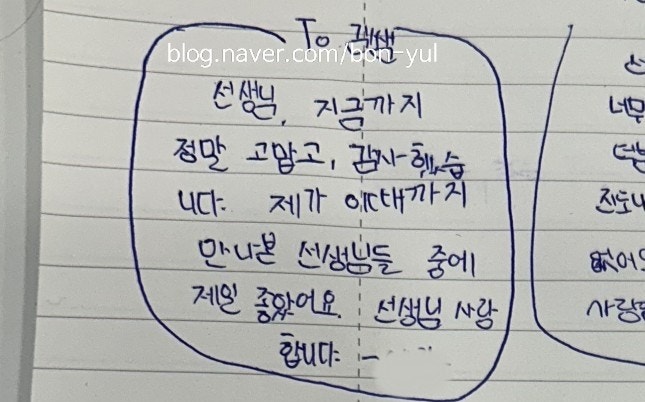 To 곽쌤
blog.naver.com/bon-yul
선생님, 지금까지
정말 고맙고, 감사했습
니다. 제가 이때까지
만나본 선생님들 중에
제일 좋았어요. 선생님 사랑
합니다. -
너무
더분
진도나
없어요
사랑